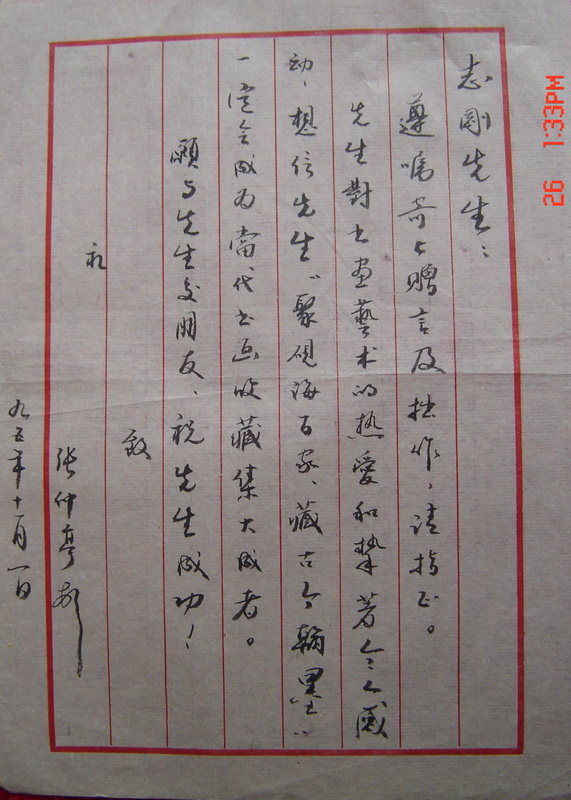 志剛先生：
遵嘱寄上赠言及拙作，请指正。
先生對书画藝术的热爱和挚著令人感
动，想信先生“聚砚海百家、藏古今翰墨”
一定会成为當代书画收藏集大成者。
願与先生交朋友，祝先生成功！
致
礼
张仲亭
九五年十月一日
26 1:33PM